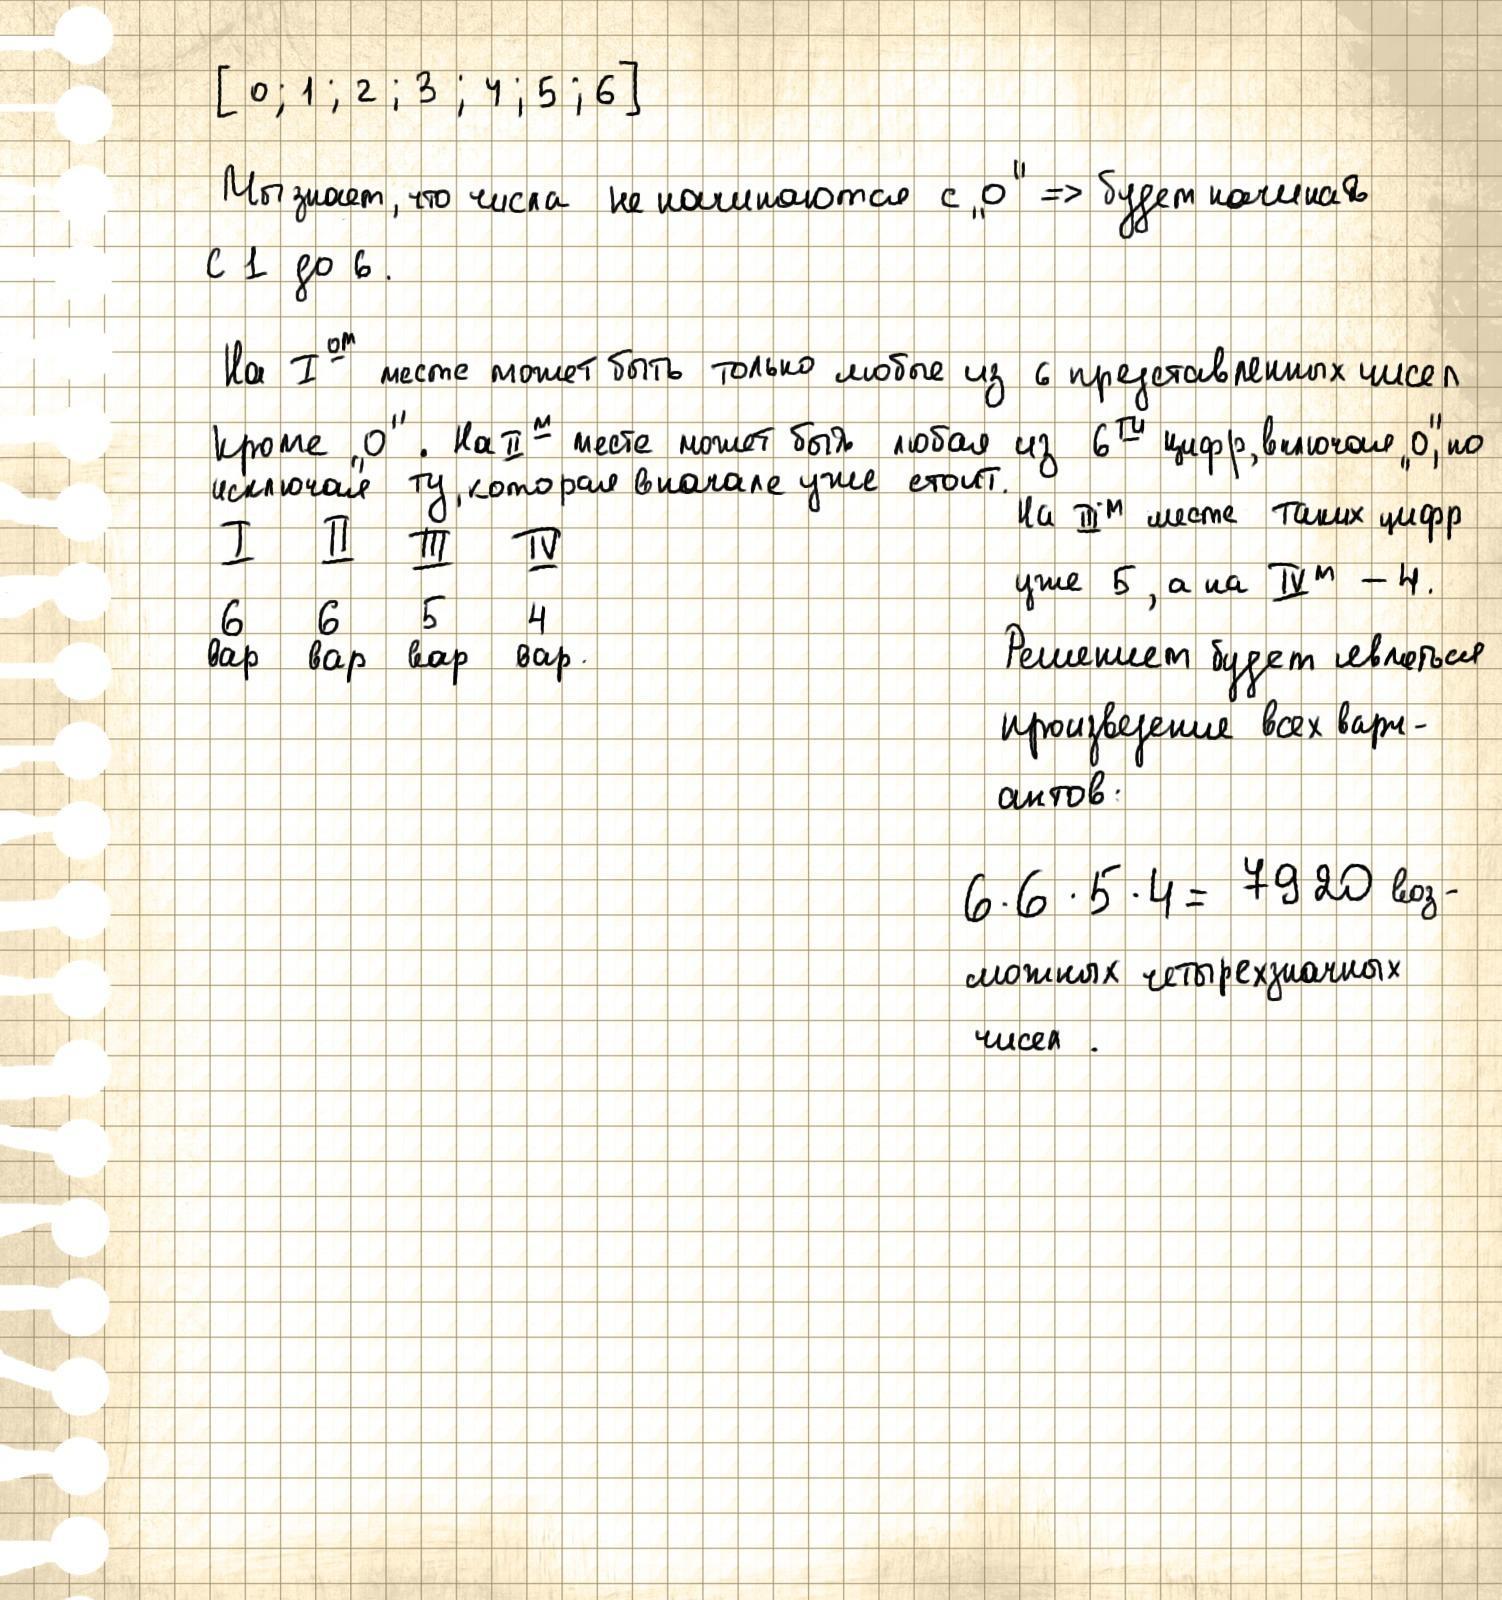 [0; 1; 2; 3; 4; 5; 6]
Мы знаем, что числа не начинаются с „0" => будет начинать
с 1 до 6.
На I ом месте может быть только любые из 6 представленных чисел
кроме „0". На II м месте может быть любая из 6 ти цифр, включая „0", но
исключая ту, которая вначале уже стоит.
На III м месте таких цифр
уже 5, а на IV м – 4.
I II III IV
6 6 5 4
вар вар вар вар.
Решением будет являться
произведение всех вари-
антов:
6 · 6 · 5 · 4 = 7920 воз-
можных четырехзначных
чисел.